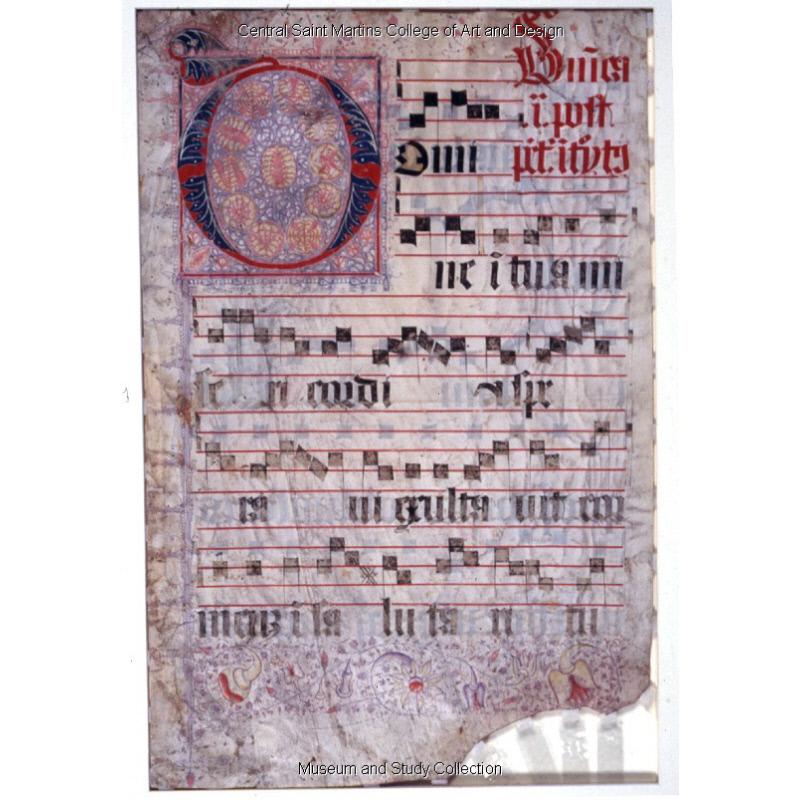 Central Saint Martins College of Art and Design
Dm̄ca
.i. post
Omi
ne i tua mi
se ri cordi a spe
ra ui exulta uit cor
meuz i sa lu ta ri tu
Museum and Study Collection